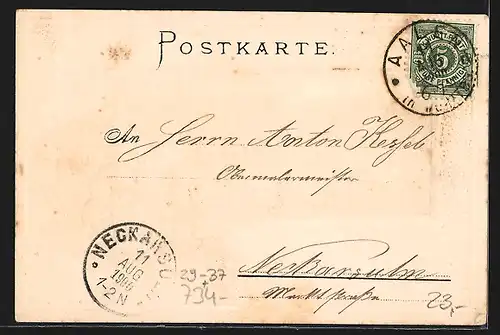 POSTKARTE.
AA
5
FÜNF PFENNIG
in
An Herrn Anton Kessel
Obermalermeister
Neckarsulm
Marktstraße
NECKARSU
11
AUG
1-2N
29-37
734-
23,-